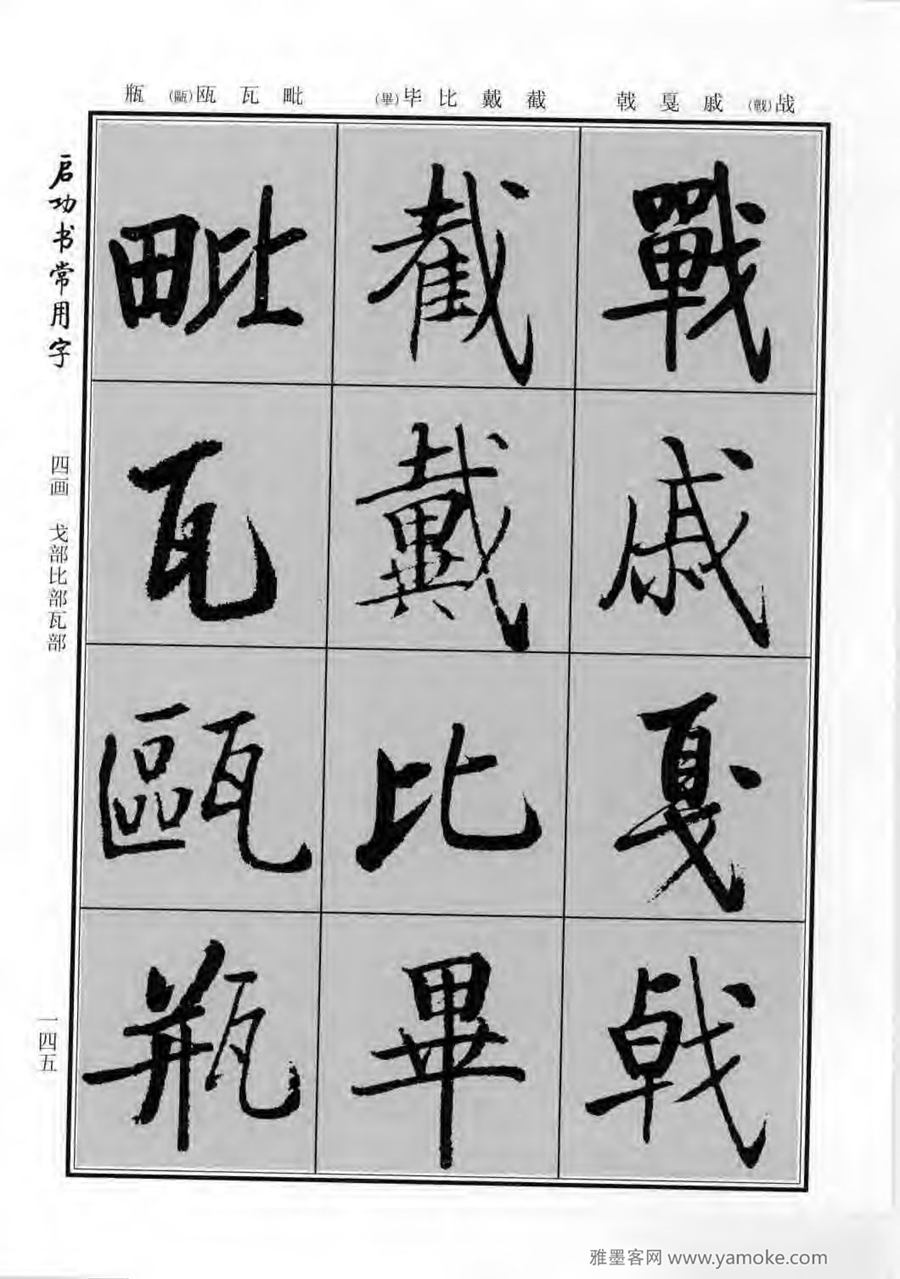 战(戰)戚戛戟
截戴比毕(畢)
毗瓦瓯(甌)瓶
戰
戚
戛
戟
截
戴
比
畢
毗
瓦
甌
瓶
启功书常用字
四画 戈部比部瓦部
一四五
雅墨客网 www.yamoke.com